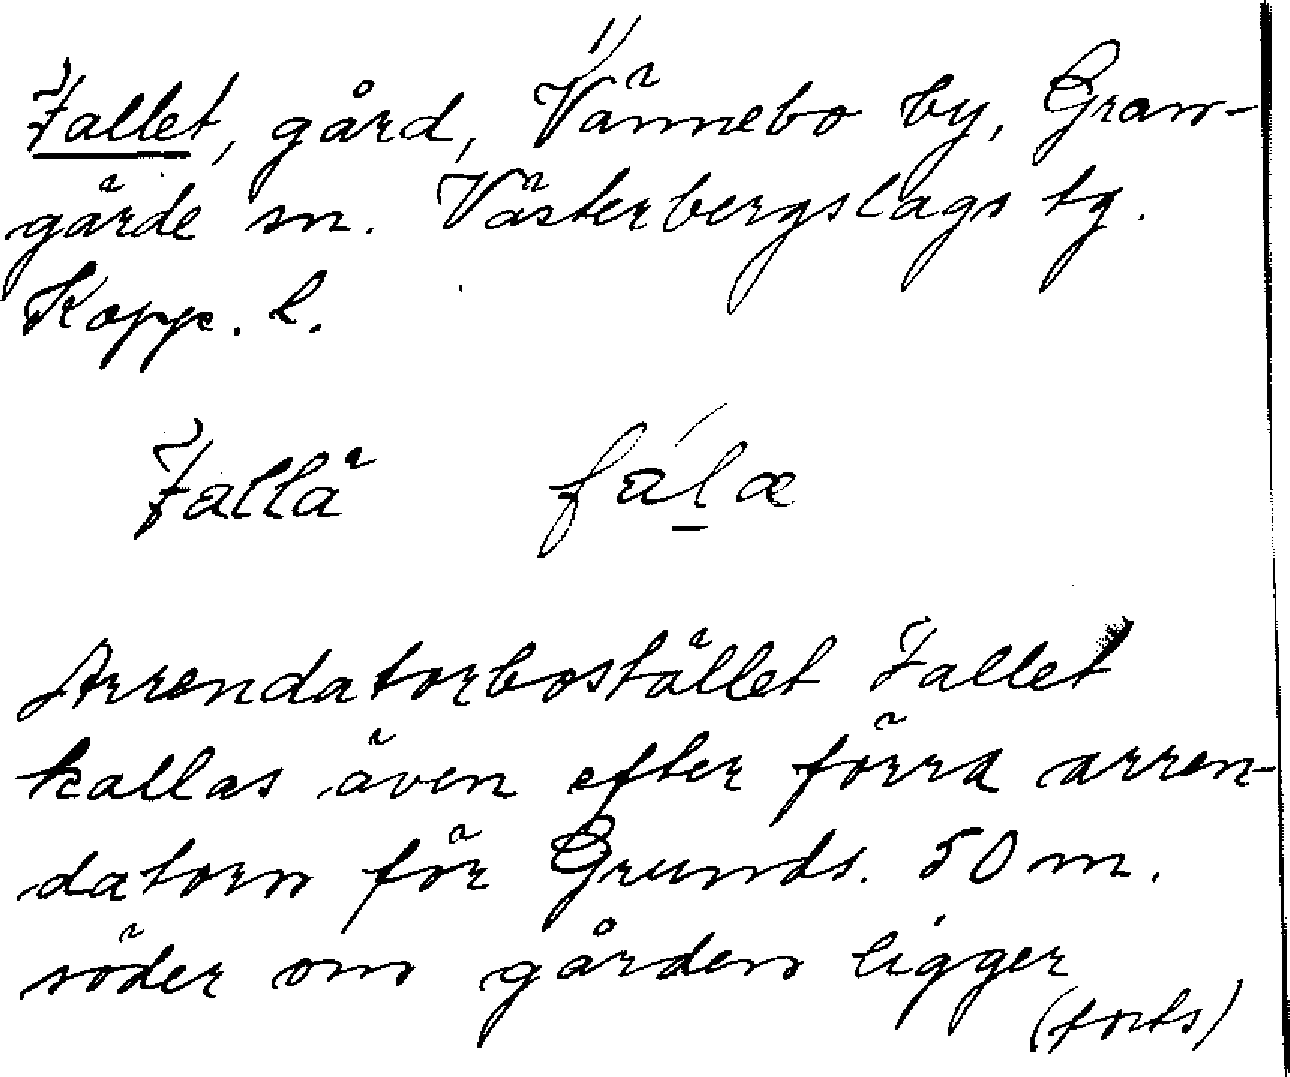 1)
Fallet, gård, Vännebo by, Gran-
gärde sn. Västerbergslags tg.
Kopp. l.
Fallä fál̲æ
Arrendatorbostället Fallet
kallas även efter förra arren-
datorn för Grunds. 50 m.
söder om gården ligger
(forts)